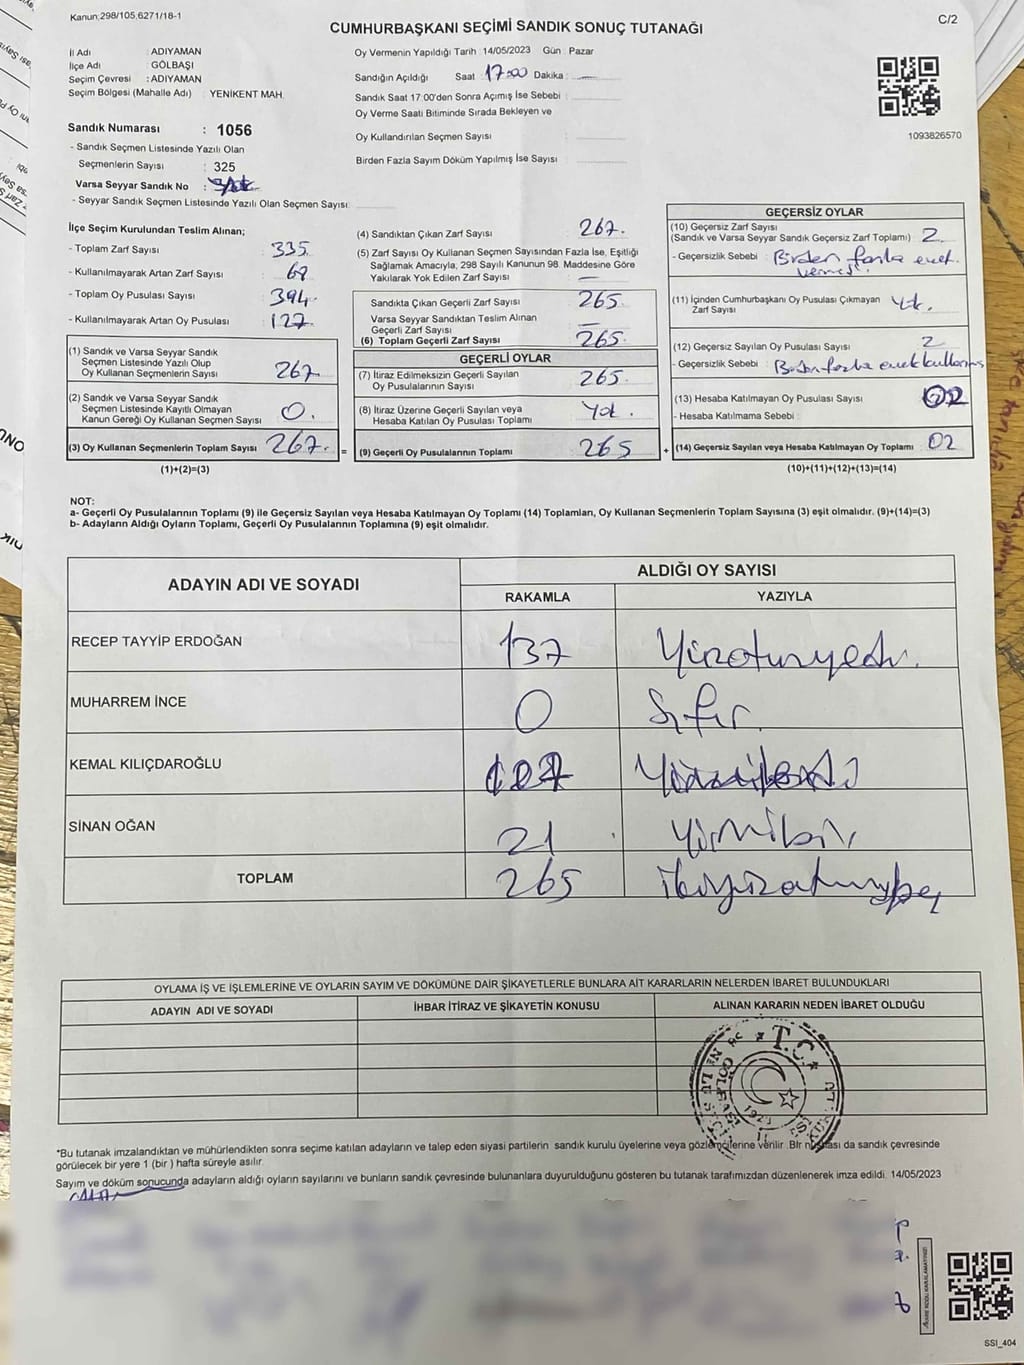 Kanun:298/105,6271/18-1
C/2
CUMHURBAŞKANI SEÇİMİ SANDIK SONUÇ TUTANAĞI
İl Adı : ADIYAMAN
İlçe Adı : GÖLBAŞI
Seçim Çevresi : ADIYAMAN
Seçim Bölgesi (Mahalle Adı) : YENİKENT MAH.
Oy Vermenin Yapıldığı Tarih :14/05/2023 Gün : Pazar
Sandığın Açıldığı Saat : 17:00 Dakika :
Sandık Saat 17:00'den Sonra Açımış İse Sebebi :
Oy Verme Saati Bitiminde Sırada Bekleyen ve
Oy Kullandırılan Seçmen Sayısı :
Birden Fazla Sayım Döküm Yapılmış İse Sayısı :
1093826570
Sandık Numarası : 1056
- Sandık Seçmen Listesinde Yazılı Olan
Seçmenlerin Sayısı : 325
Varsa Seyyar Sandık No :
- Seyyar Sandık Seçmen Listesinde Yazılı Olan Seçmen Sayısı:
İlçe Seçim Kurulundan Teslim Alınan;
- Toplam Zarf Sayısı : 335
- Kullanılmayarak Artan Zarf Sayısı :
- Toplam Oy Pusulası Sayısı : 394
- Kullanılmayarak Artan Oy Pusulası : 127
(1) Sandık ve Varsa Seyyar Sandık
Seçmen Listesinde Yazılı Olup
Oy Kullanan Seçmenlerin Sayısı 267
(2) Sandık ve Varsa Seyyar Sandık
Seçmen Listesinde Kayıtlı Olmayan
Kanun Gereği Oy Kullanan Seçmen Sayısı : 0.
(3) Oy Kullanan Seçmenlerin Toplam Sayısı : 267.
(1)+(2)=(3)
(4) Sandıktan Çıkan Zarf Sayısı : 267.
(5) Zarf Sayısı Oy Kullanan Seçmen Sayısından Fazla İse, Eşitliği
Sağlamak Amacıyla, 298 Sayılı Kanunun 98. Maddesine Göre
Yakılarak Yok Edilen Zarf Sayısı : —
Sandıkta Çıkan Geçerli Zarf Sayısı : 265
Varsa Seyyar Sandıktan Teslim Alınan
Geçerli Zarf Sayısı : —
(6) Toplam Geçerli Zarf Sayısı : 265.
GEÇERLİ OYLAR
(7) İtiraz Edilmeksizin Geçerli Sayılan
Oy Pusulalarının Sayısı : 265.
(8) İtiraz Üzerine Geçerli Sayılan veya
Hesaba Katılan Oy Pusulası Toplamı : Yok.
= (9) Geçerli Oy Pusulalarının Toplamı : 265
GEÇERSİZ OYLAR
(10) Geçersiz Zarf Sayısı
(Sandık ve Varsa Seyyar Sandık Geçersiz Zarf Toplamı) : 2
- Geçersizlik Sebebi : Birden fazla evet.
(11) İçinden Cumhurbaşkanı Oy Pusulası Çıkmayan
Zarf Sayısı : Yok.
(12) Geçersiz Sayılan Oy Pusulası Sayısı : 2
- Geçersizlik Sebebi : Birden fazla evet
(13) Hesaba Katılmayan Oy Pusulası Sayısı : 02
- Hesaba Katılmama Sebebi :
+ (14) Geçersiz Sayılan veya Hesaba Katılmayan Oy Toplamı : 02
(10)+(11)+(12)+(13)=(14)
NOT:
a- Geçerli Oy Pusulalarının Toplamı (9) ile Geçersiz Sayılan veya Hesaba Katılmayan Oy Toplamı (14) Toplamları, Oy Kullanan Seçmenlerin Toplam Sayısına (3) eşit olmalıdır. (9)+(14)=(3)
b- Adayların Aldığı Oyların Toplamı, Geçerli Oy Pusulalarının Toplamına (9) eşit olmalıdır.
ADAYIN ADI VE SOYADI
ALDIĞI OY SAYISI
RAKAMLA
YAZIYLA
RECEP TAYYİP ERDOĞAN 137 Yüzotuzyedi.
MUHARREM İNCE 0 Sıfır.
KEMAL KILIÇDAROĞLU 107
SİNAN OĞAN 21 Yirmibir
TOPLAM 265 ikiyüzaltmışbeş
OYLAMA İŞ VE İŞLEMLERİNE VE OYLARIN SAYIM VE DÖKÜMÜNE DAİR ŞİKAYETLERLE BUNLARA AİT KARARLARIN NELERDEN İBARET BULUNDUKLARI
ADAYIN ADI VE SOYADI
İHBAR İTİRAZ VE ŞİKAYETİN KONUSU
ALINAN KARARIN NEDEN İBARET OLDUĞU
T.C.
*Bu tutanak imzalandıktan ve mühürlendikten sonra seçime katılan adayların ve talep eden siyasi partilerin sandık kurulu üyelerine veya gözlemcilerine verilir. Bir nüshası da sandık çevresinde
görülecek bir yere 1 (bir ) hafta süreyle asılır.
Sayım ve döküm sonucunda adayların aldığı oyların sayılarını ve bunların sandık çevresinde bulunanlara duyurulduğunu gösteren bu tutanak tarafımızdan düzenlenerek imza edildi. 14/05/2023
SSI_404